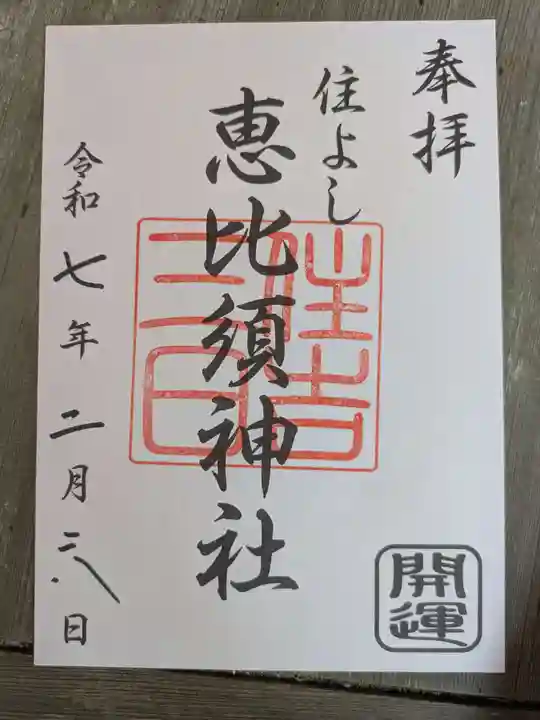 奉拝
住よし
恵比須神社
住吉
令和七年二月二八日
開運